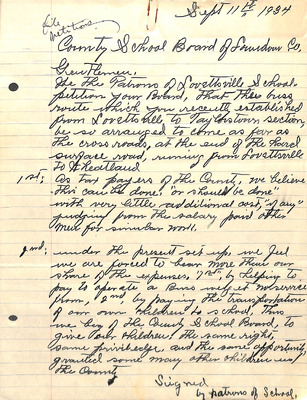 file
Petitions
Sept 11th 1934
County School Board of Loudoun Co.
Gentlemen.
We the Patrons of Lovettsville School
petition your Board, that the bus
route which you recently established
from Lovettsville to Taylorstown section,
be so arranged to come as far as
the cross roads, at the end of the hard
surface road, running from Lovettsville
to Wheatland
1st; As tax payers of the County, we believe
this can be done, "or should be done"
with very little additional cost, "if any"
judging from the salary paid other
men for similar work.
2nd; under the present set up, we feel
we are forced to bear more than our
share of the expenses, 1st, by helping to
pay to operate a Bus we get no service
from, 2nd by paying the transportation
of our own children to school, Thus
we beg of the County School Board, to
give our children, the same right,
same priviledge, and the same opportunity
granted so many other children in
the County
Signed
by patrons of School.